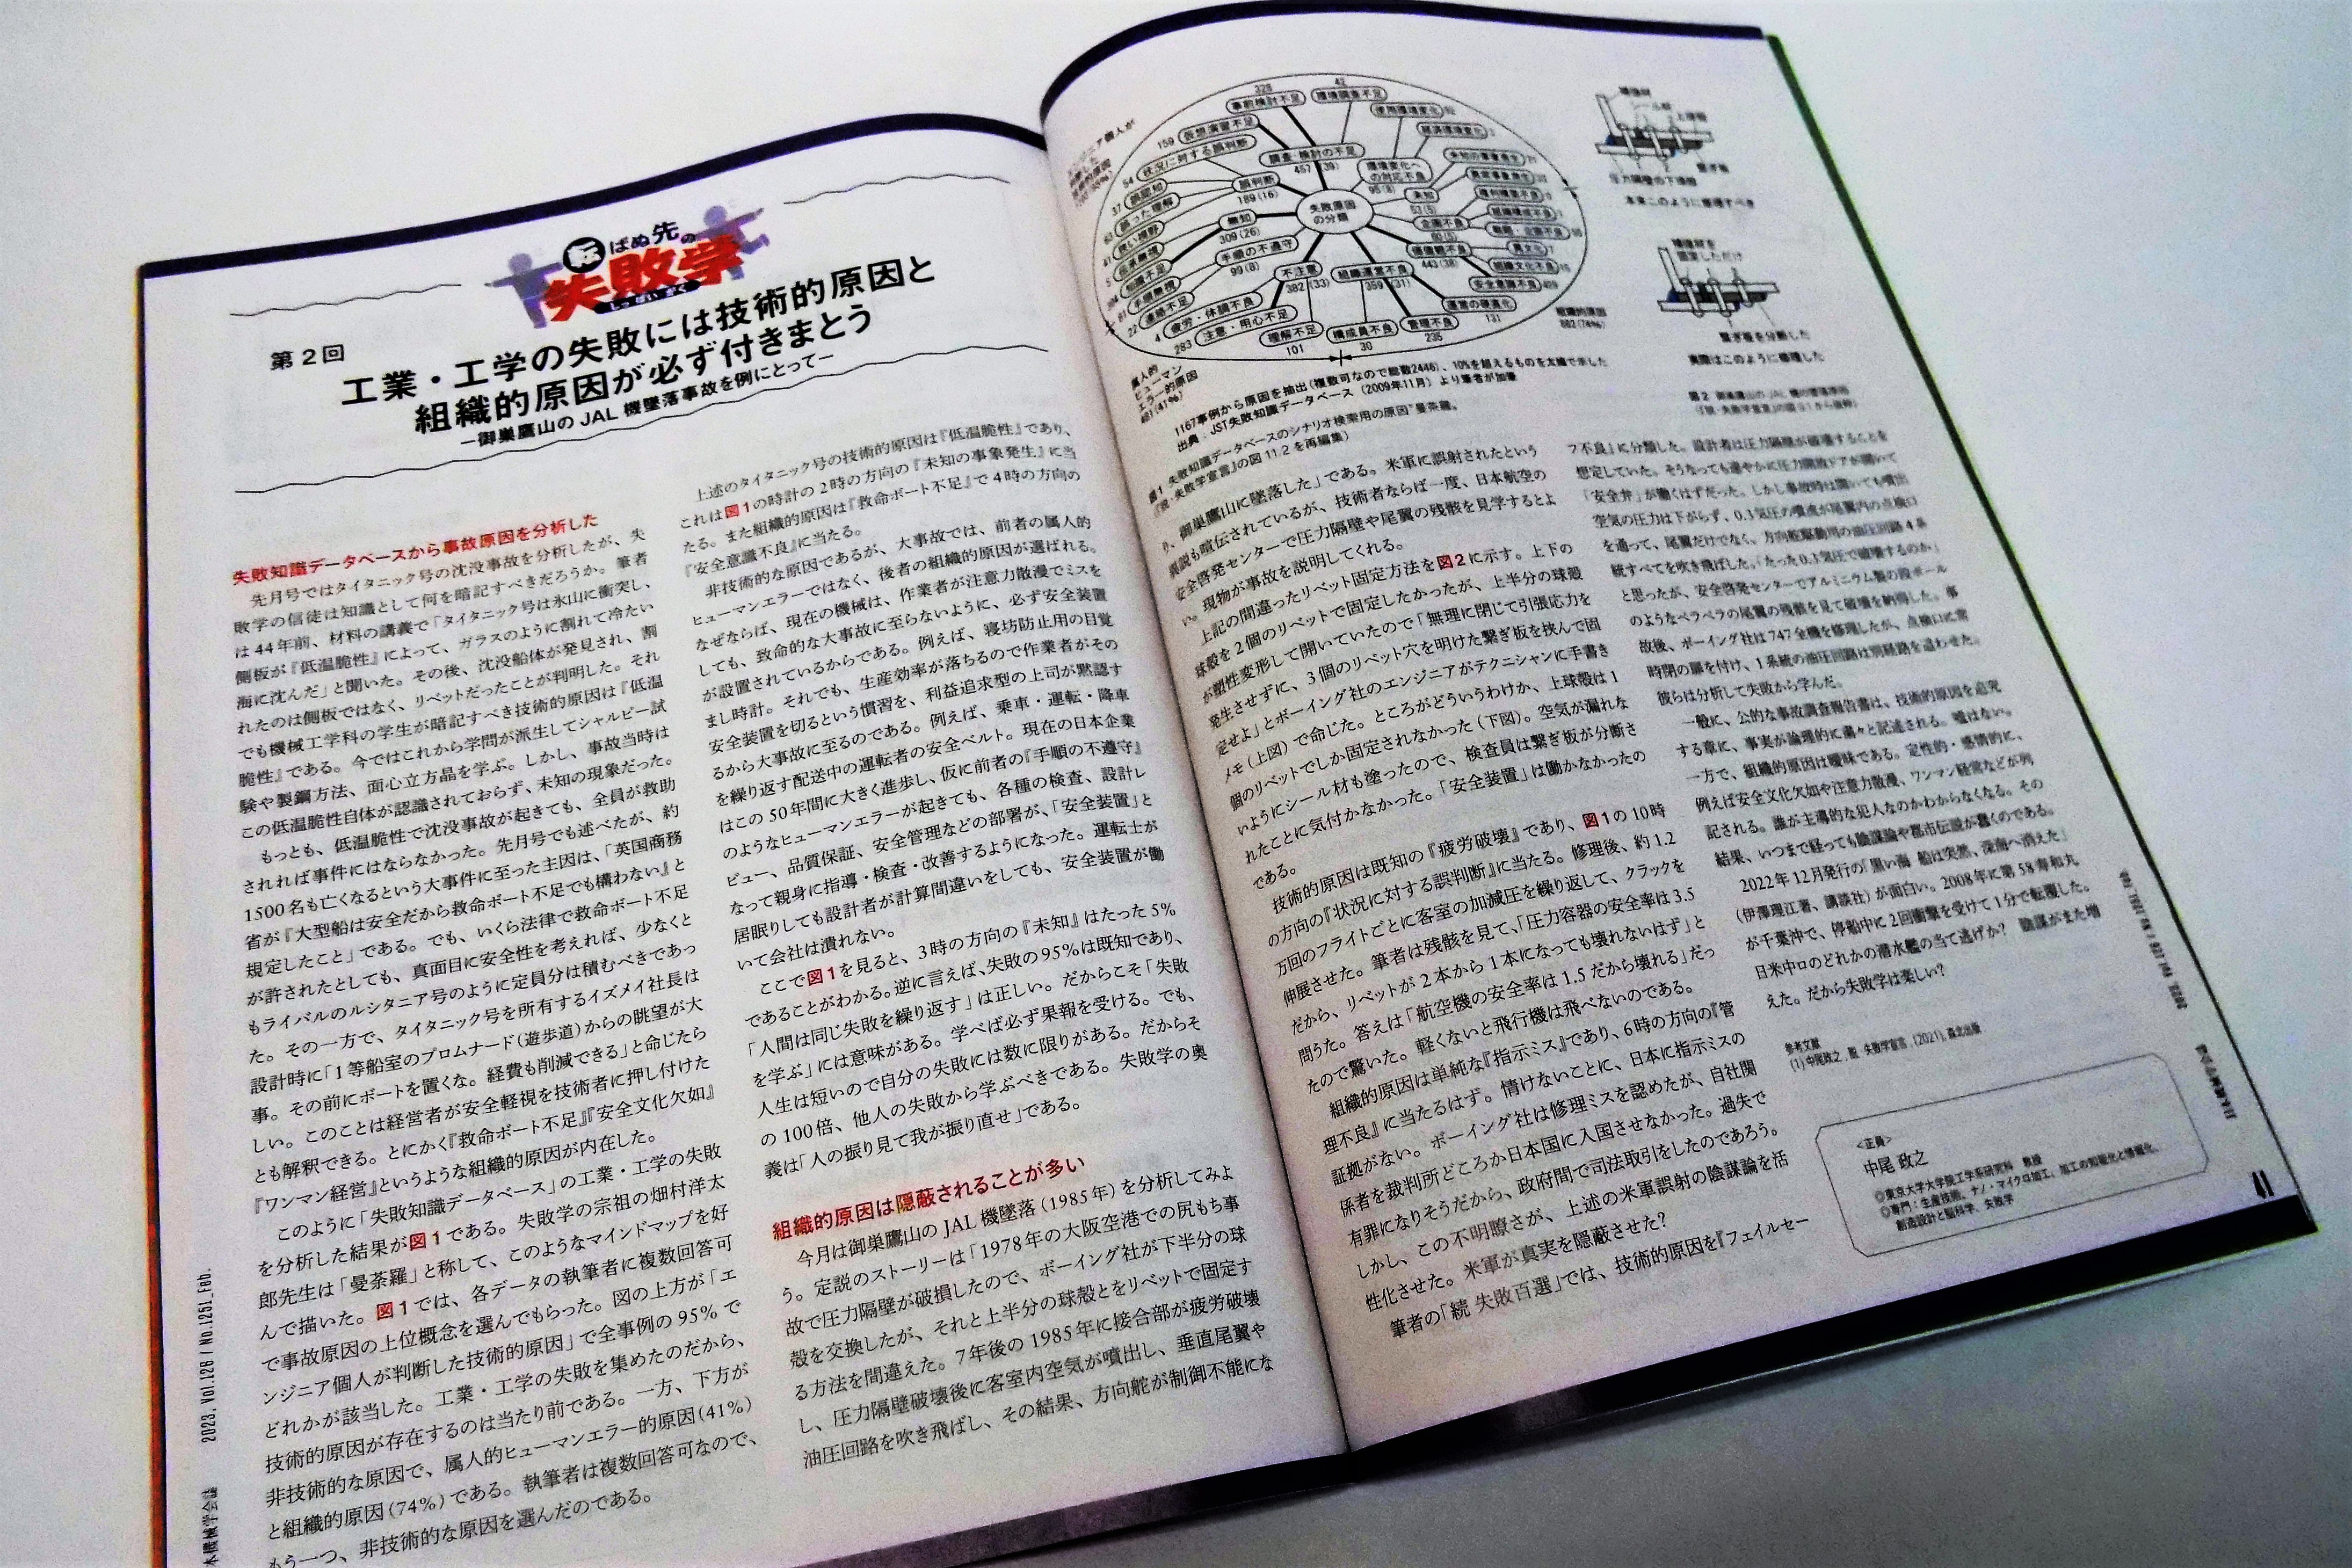 転ばぬ先の
失敗学
しっぱいがく
第2回
工業・工学の失敗には技術的原因と
組織的原因が必ず付きまとう
―御巣鷹山のJAL機墜落事故を例にとって―
失敗知識データベースから事故原因を分析した
先月号ではタイタニック号の沈没事故を分析したが、失
敗学の信徒は知識として何を暗記すべきだろうか。筆者
は44年前、材料の講義で「タイタニック号は氷山に衝突し、
側板が『低温脆性』によって、ガラスのように割れて冷たい
海に沈んだ」と聞いた。その後、沈没船体が発見され、割
れたのは側板ではなく、リベットだったことが判明した。それ
でも機械工学科の学生が暗記すべき技術的原因は『低温
脆性』である。今ではこれから学問が派生してシャルピー試
験や製鋼方法、面心立方晶を学ぶ。しかし、事故当時は
この低温脆性自体が認識されておらず、未知の現象だった。
もっとも、低温脆性で沈没事故が起きても、全員が救助
されれば事件にはならなかった。先月号でも述べたが、約
1500名も亡くなるという大事件に至った主因は、「英国商務
省が『大型船は安全だから救命ボート不足でも構わない』と
規定したこと」である。でも、いくら法律で救命ボート不足
が許されたとしても、真面目に安全性を考えれば、少なくと
もライバルのルシタニア号のように定員分は積むべきであっ
た。その一方で、タイタニック号を所有するイズメイ社長は
設計時に「1等船室のプロムナード(遊歩道)からの眺望が大
事。その前にボートを置くな。経費も削減できる」と命じたら
しい。このことは経営者が安全軽視を技術者に押し付けた
とも解釈できる。とにかく『救命ボート不足』『安全文化欠如』
『ワンマン経営』というような組織的原因が内在した。
このように「失敗知識データベース」の工業・工学の失敗
を分析した結果が図1である。失敗学の宗祖の畑村洋太
郎先生は「曼荼羅」と称して、このようなマインドマップを好
んで描いた。図1では、各データの執筆者に複数回答可
で事故原因の上位概念を選んでもらった。図の上方が「エ
ンジニア個人が判断した技術的原因」で全事例の95%で
どれかが該当した。工業・工学の失敗を集めたのだから、
技術的原因が存在するのは当たり前である。一方、下方が
非技術的な原因で、属人的ヒューマンエラー的原因(41%)
と組織的原因(74%)である。執筆者は複数回答可なので、
もう一つ、非技術的な原因を選んだのである。
上述のタイタニック号の技術的原因は『低温脆性』であり、
これは図1の時計の2時の方向の『未知の事象発生』に当
たる。また組織的原因は『救命ボート不足』で4時の方向の
『安全意識不良』に当たる。
非技術的な原因であるが、大事故では、前者の属人的
ヒューマンエラーではなく、後者の組織的原因が選ばれる。
なぜならば、現在の機械は、作業者が注意力散漫でミスを
しても、致命的な大事故に至らないように、必ず安全装置
が設置されているからである。例えば、寝坊防止用の目覚
まし時計。それでも、生産効率が落ちるので作業者がその
安全装置を切るという慣習を、利益追求型の上司が黙認す
るから大事故に至るのである。例えば、乗車・運転・降車
を繰り返す配送中の運転者の安全ベルト。現在の日本企業
はこの50年間に大きく進歩し、仮に前者の『手順の不遵守』
のようなヒューマンエラーが起きても、各種の検査、設計レ
ビュー、品質保証、安全管理などの部署が、「安全装置」と
なって親身に指導・検査・改善するようになった。運転士が
居眠りしても設計者が計算間違いをしても、安全装置が働
いて会社は潰れない。
ここで図1を見ると、3時の方向の『未知』はたった5%
であることがわかる。逆に言えば、失敗の95%は既知であり、
「人間は同じ失敗を繰り返す」は正しい。だからこそ「失敗
を学ぶ」には意味がある。学べば必ず果報を受ける。でも、
人生は短いので自分の失敗には数に限りがある。だからそ
の100倍、他人の失敗から学ぶべきである。失敗学の奥
義は「人の振り見て我が振り直せ」である。
組織的原因は隠蔽されることが多い
今月は御巣鷹山のJAL機墜落(1985年)を分析してみよ
う。定説のストーリーは「1978年の大阪空港での尻もち事
故で圧力隔壁が破損したので、ボーイング社が下半分の球
殻を交換したが、それと上半分の球殻とをリベットで固定す
る方法を間違えた。7年後の1985年に接合部が疲労破壊
し、圧力隔壁破壊後に客室内空気が噴出し、垂直尾翼や
油圧回路を吹き飛ばし、その結果、方向舵が制御不能にな
本機械学会誌 2023, Vol.126 / No.1251_Feb.
失敗原因
の分類
事前検討不足
328
環境調査不足
42
仮想演習不足
159
状況に対する誤判断
54
誤認知
37
誤った理解
調査・検討の不足
457 (39)
誤判断
189(16)
無知
309(26)
手順の不遵守
99(8)
不注意
382 (33)
組織運営不良
359 (31)
環境変化へ
の対応不良
使用環境変化
経済環境変化
未知
企画不良
価値観不良
443(38)
異文化
組織文化不良
安全意識不良
運営の硬直化
131
管理不良
235
構成員不良
30
理解不足
101
注意・用心不足
283
疲労・体調不良
4
連絡不足
22
手順無視
知識不足
属人的
ヒューマン
エラー的原因
481(41%)
組織的原因
882(74%)
1167事例から原因を抽出(複数可なので総数2446)、10%を超えるものを太線で示した
出典：JST失敗知識データベース(2009年11月)より筆者が加筆
図1 失敗知識データベースのシナリオ検索用の原因“曼荼羅。
(『脱・失敗学宣言』の図11.2を再編集)
り、御巣鷹山に墜落した」である。米軍に誤射されたという
異説も喧伝されているが、技術者ならば一度、日本航空の
安全啓発センターで圧力隔壁や尾翼の残骸を見学するとよ
い。現物が事故を説明してくれる。
上記の間違ったリベット固定方法を図2に示す。上下の
球殻を2個のリベットで固定したかったが、上半分の球殻
が塑性変形して開いていたので「無理に閉じて引張応力を
発生させずに、3個のリベット穴を明けた繋ぎ板を挟んで固
定せよ」とボーイング社のエンジニアがテクニシャンに手書き
メモ(上図)で命じた。ところがどういうわけか、上球殻は1
個のリベットでしか固定されなかった(下図)。空気が漏れな
いようにシール材も塗ったので、検査員は繋ぎ板が分断さ
れたことに気付かなかった。「安全装置」は働かなかったの
である。
技術的原因は既知の『疲労破壊』であり、図1の10時
の方向の『状況に対する誤判断』に当たる。修理後、約1.2
万回のフライトごとに客室の加減圧を繰り返して、クラックを
伸展させた。筆者は残骸を見て、「圧力容器の安全率は3.5
だから、リベットが2本から1本になっても壊れないはず」と
問うた。答えは「航空機の安全率は1.5だから壊れる」だっ
たので驚いた。軽くないと飛行機は飛べないのである。
組織的原因は単純な『指示ミス』であり、6時の方向の『管
理不良』に当たるはず。情けないことに、日本に指示ミスの
証拠がない。ボーイング社は修理ミスを認めたが、自社関
係者を裁判所どころか日本国に入国させなかった。過失で
有罪になりそうだから、政府間で司法取引をしたのであろう。
しかし、この不明瞭さが、上述の米軍誤射の陰謀論を活
性化させた。米軍が真実を隠蔽させた?
筆者の「続 失敗百選」では、技術的原因を『フェイルセー
補強材
圧力隔壁の下球殻
繋ぎ板
本来このように修理すべき
補強材を
固定しただけ
繋ぎ板を分断した
実際はこのように修理した
フ不良』に分類した。設計者は圧力隔壁が破壊することを
想定していた。そうなっても速やかに圧力開放ドアが開いて
「安全弁」が働くはずだった。しかし事故時は開いても噴出
空気の圧力は下がらず、0.3気圧の噴流が尾翼内の点検口
を通って、尾翼だけでなく、方向舵駆動用の油圧回路4系
統すべてを吹き飛ばした。「たった0.3気圧で破壊するのか」
と思ったが、安全啓発センターでアルミニウム製の段ボール
のようなペラペラの尾翼の残骸を見て破壊を納得した。事
故後、ボーイング社は747全機を修理したが、点検口に常
時閉の扉を付け、1系統の油圧回路は別経路を這わせた。
彼らは分析して失敗から学んだ。
一般に、公的な事故調査報告書は、技術的原因を追究
する章に、事実が論理的に粛々と記述される。嘘はない。
一方で、組織的原因は曖昧である。定性的・感情的に、
例えば安全文化欠如や注意力散漫、ワンマン経営などが列
記される。誰が主導的な犯人なのかわからなくなる。その
結果、いつまで経っても陰謀論や都市伝説が蠢くのである。
2022年12月発行の「黒い海 船は突然、深海へ消えた」
(伊澤理江著、講談社)が面白い。2008年に第58寿和丸
が千葉沖で、停船中に2回衝撃を受けて1分で転覆した。
日米中ロのどれかの潜水艦の当て逃げか? 陰謀がまた増
えた。だから失敗学は楽しい?
参考文献
(1) 中尾政之, 脱・失敗学宣言, (2021), 森北出版
<正員>
中尾 政之
◎東京大学大学院工学系研究科 教授
◎専門：生産技術、ナノ・マイクロ加工、加工の知能化と情報化、
創造設計と脳科学、失敗学
41